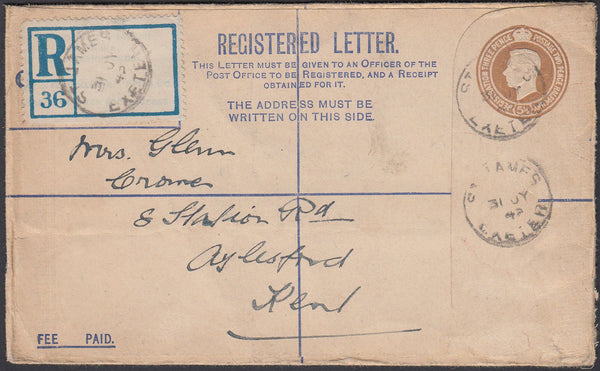 REGISTERED LETTER.
THIS LETTER MUST BE GIVEN TO AN OFFICER OF THE
POST OFFICE TO BE REGISTERED, AND A RECEIPT
OBTAINED FOR IT.
THE ADDRESS MUST BE
WRITTEN ON THIS SIDE.
R
36
ST JAMES
31 JY
42
EXETER
EXETER
ST JAMES
31 JY
42
EXETER
Mrs. Glenn
Crower
8 Station Rd
Aylesford
Kent
FEE PAID.